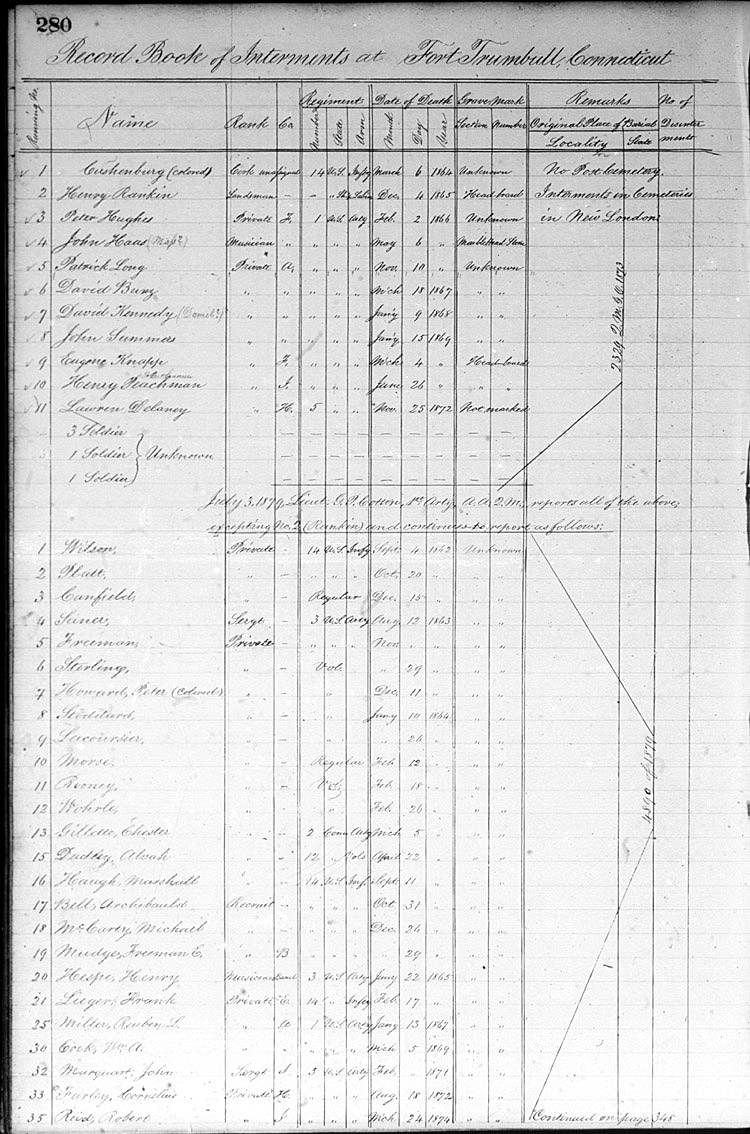 280
Record Book of Interments at Fort Trumbull, Connecticut
Running No. Name Rank Co. Regiment Date of Death Grave Mark Remarks No of Disinterments
Number State Arm Month Day Year Section Number Original Place of Burial
Locality State
1 Cushenburg (colored) Cook unassigned 14 U.S. Infy March 6 1864 Unknown No Post Cemetery.
2 Henry Rankin Landsman – Dec. 4 1865 Headboard Interments in Cemeteries
3 Peter Hughes Private F. 1 U.S. Arty Feb. 2 1866 Unknown in New London.
4 John Haas Musician " " " " May 6 " Marble Head Stone
5 Patrick Long Private A. " " " Nov. 10 " Unknown
6 David Burz " " " " " Mch 18 1867 " "
7 David Kennedy " " " " " Jany 9 1868 " "
8 John Summas " " " " " Jany 15 1869 " "
9 Eugene Knapp " F. " " " Mch 4 " Headboard
10 Henry Plachman " I. " " " June 26 " " "
11 Lawren Delaney " H. 5 " " Nov. 25 1872 Not marked
3 Soldier – – – – – – – – –
1 Soldier } Unknown – – – – – – – – –
1 Soldier – – – – – – – – –
2329 Q.M.G.O. 1873
July 3, 1879, Lieut. G. P. Cotton, 1st Arty, A.A.Q.M., reports all of the above,
excepting No. 2 (Rankin) and continues to report as follows:
1 Wilson, Private – 14 U.S. Infy Sept. 4 1862 Unknown
2 Platt, " – " " " Oct. 20 " " "
3 Canfield, " – Regular Dec. 15 " " "
4 Saner, Sergt – 3 U.S. Arty Aug. 12 1863 " "
5 Freeman, Private – " " " Nov. " " "
6 Sterling, " – Vol. " 29 " " "
7 Howard, Peter (colored) " – " Dec. 11 " " "
8 Stoddard, " – " Jany 10 1864 " "
9 Lacoursier, " – " " 26 " " "
10 Morse, " – Regular Feb 12 " " "
11 Rooney, " – Vol. Feb. 18 " " "
12 Wohrle, " – " Feb. 26 " " "
13 Gillette, Chester " – 2 Conn Arty Mch 5 " " "
15 Dudley, Alvah " – 12 " Vols April 22 " " "
16 Haugh, Marshall " – 14 U.S. Inf. Sept. 11 " " "
17 Bell, Archibauld Recruit – " " " Oct. 31 " " "
18 McCarty, Michael " – " " " Dec. 26 " " "
19 Mudge, Freeman E. " B " " " " 29 " " "
20 Hespe, Henry Musician Band 3 U.S. Arty Jany 22 1865 " "
21 Lieger, Frank Private C. 14 " Infy Feb. 17 " " "
25 Miller, Reuben L. " 1 U.S. Arty Jany 13 1867 " "
30 Cock, Wm. A. " " " " " Mch 5 1869 " "
32 Marquart, John Sergt I. 5 U.S. Arty Feb. " 1871 " "
33 Furley, Cornelius Private H. " " " Aug. 18 1872 " "
35 Reid, Robert " I " " " Mch. 24 1874 " " Continued on page 348
4890 of 1879